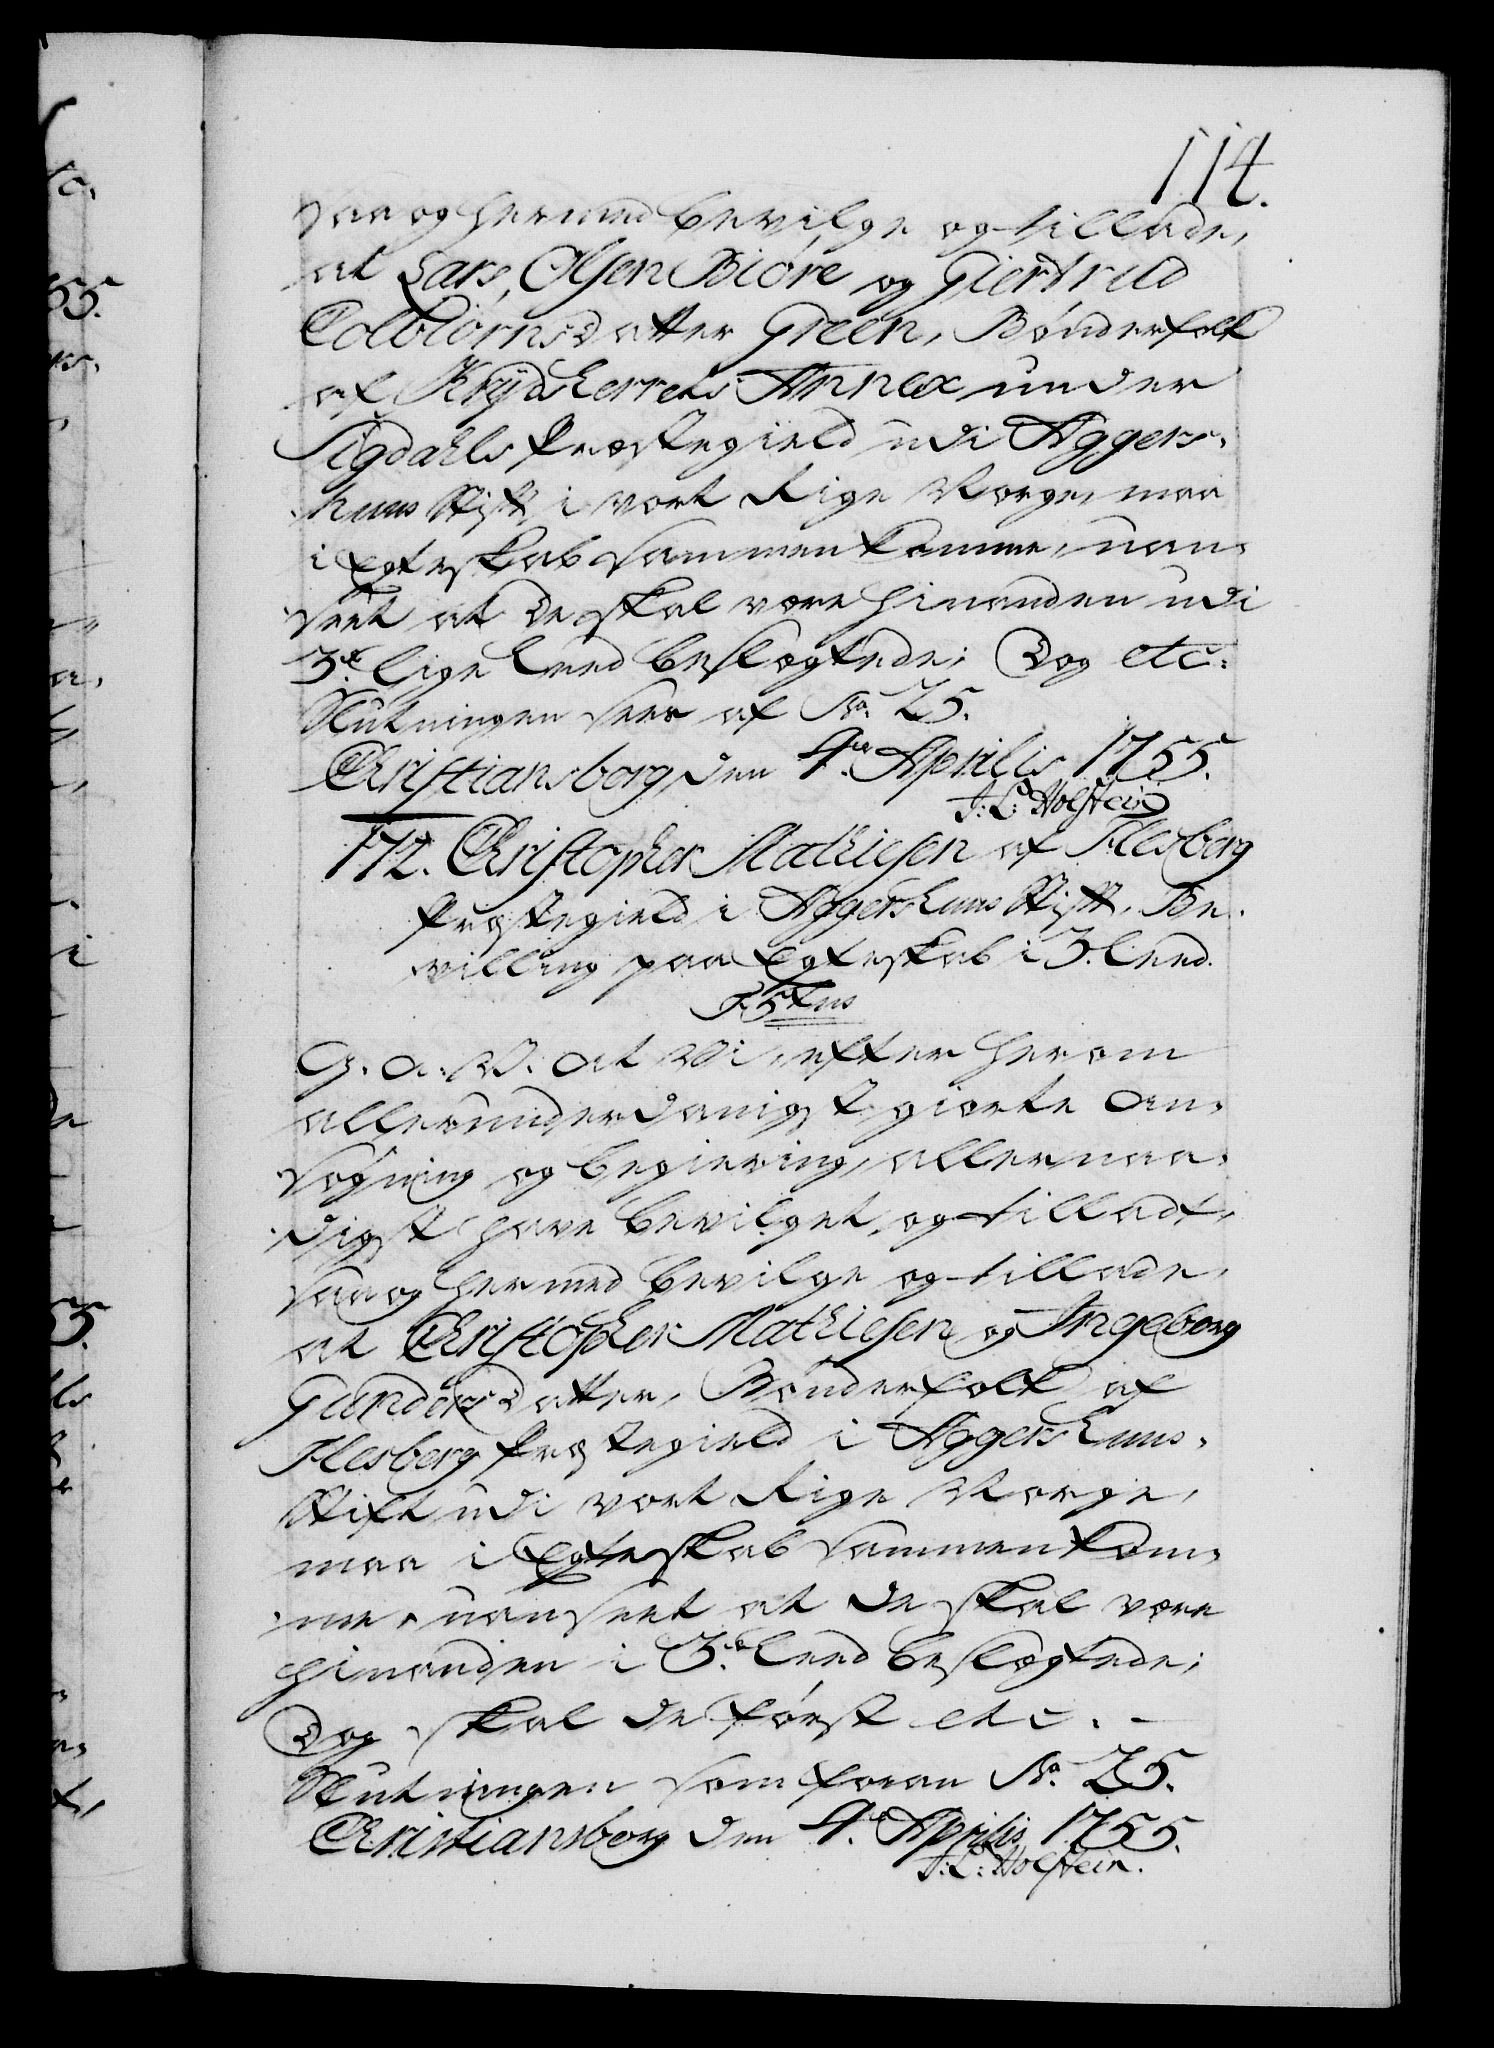 114.
saa og hermed bevilge og tillade,
at Lars Olsen Biøre og Giertrud
Colbiørnsdatter Green, Bønderfolk
af Krydsherrets Annex under
Sigdahls Præstegield udi Aggers-
huus Stift i vort Rige Norge, maa
i Egteskab sammenkomme, uan-
seet at de skal være hinanden udi
3die lige Leed beslægtede; Dog etc:
Slutningen sees af No. 25.
Christiansborg den 4de Aprilis 1755.
J: L: Holstein
172. Christopher Mathiesen af Flesberg
Præstegield i Aggershuus Stift, Be-
villing paa Egteskab i 3. Leed.
F 5tus
G. a. V. at Vi, efter herom
allerunderdanigst giorte An-
søgning og begiering, allernaa-
digst have bevilget, og tilladt,
saa og hermed bevilge og tillade,
at Christopher Mathiesen og Ingeborg
Gundersdatter, Bønderfolk af
Flesberg Præstegield i Aggershuus-
Stift udi vort Rige Norge,
maa i Egteskab sammenkom-
me, uanseet at de skal være
hinanden i 3de Leed beslægtede;
Dog skal de først etc. -
Slutningen som foran No. 25.
Christiansborg den 4de Aprilis 1755.
J: L: Holstein.